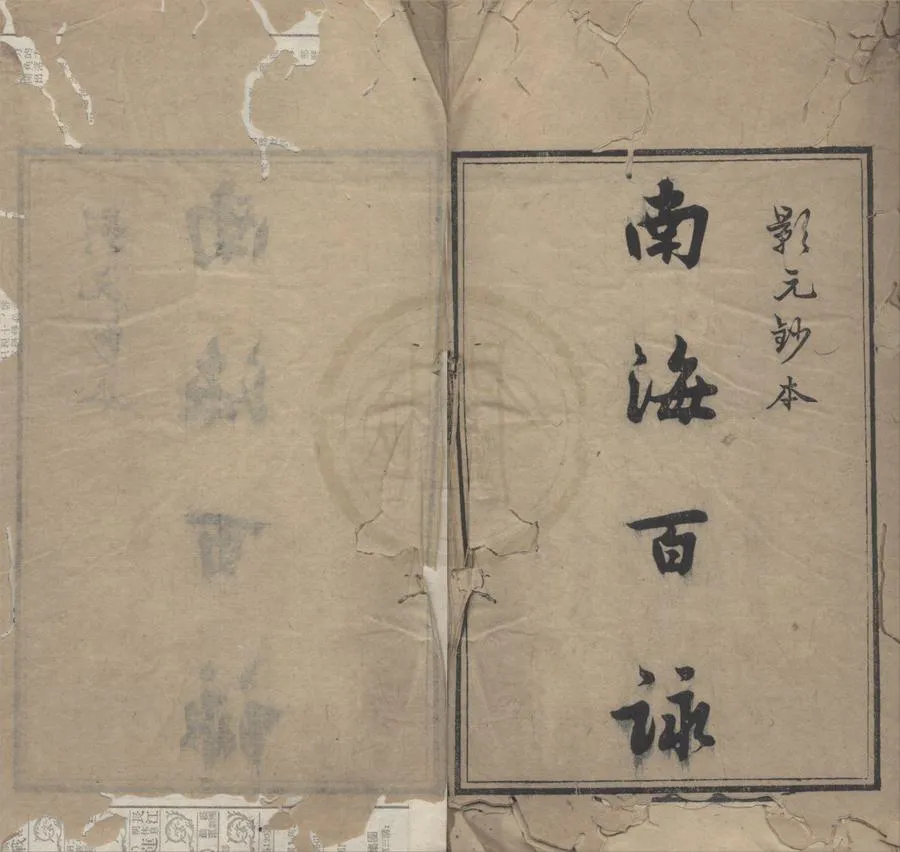 影元鈔本
南海百詠